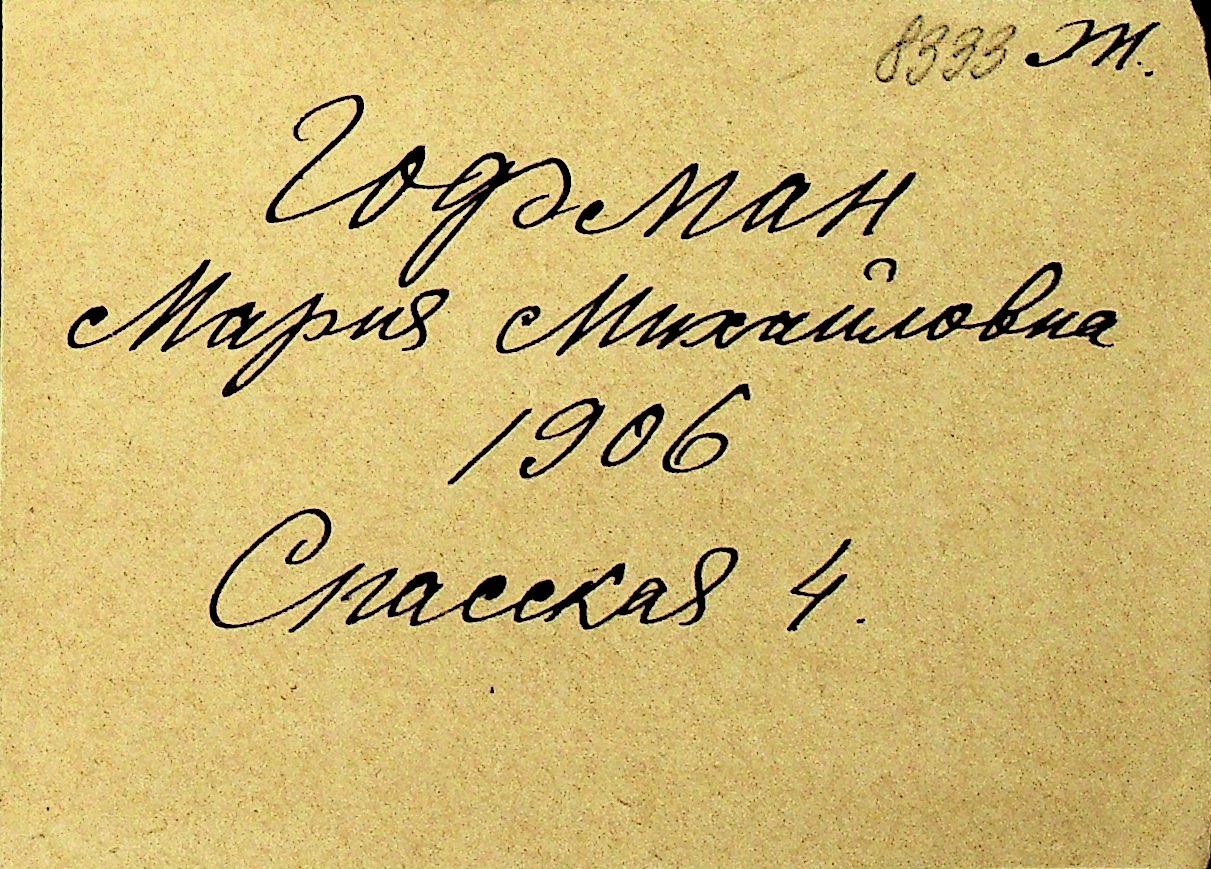 8333 Ж.
Гофман
Мария Михайловна
1906
Спасская 4.